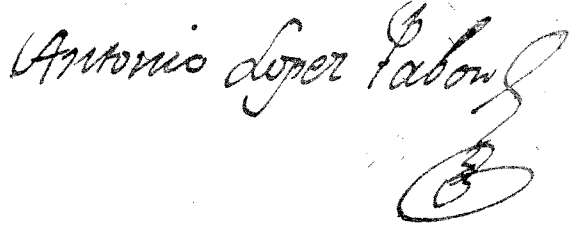 Antonio Loper Pabon